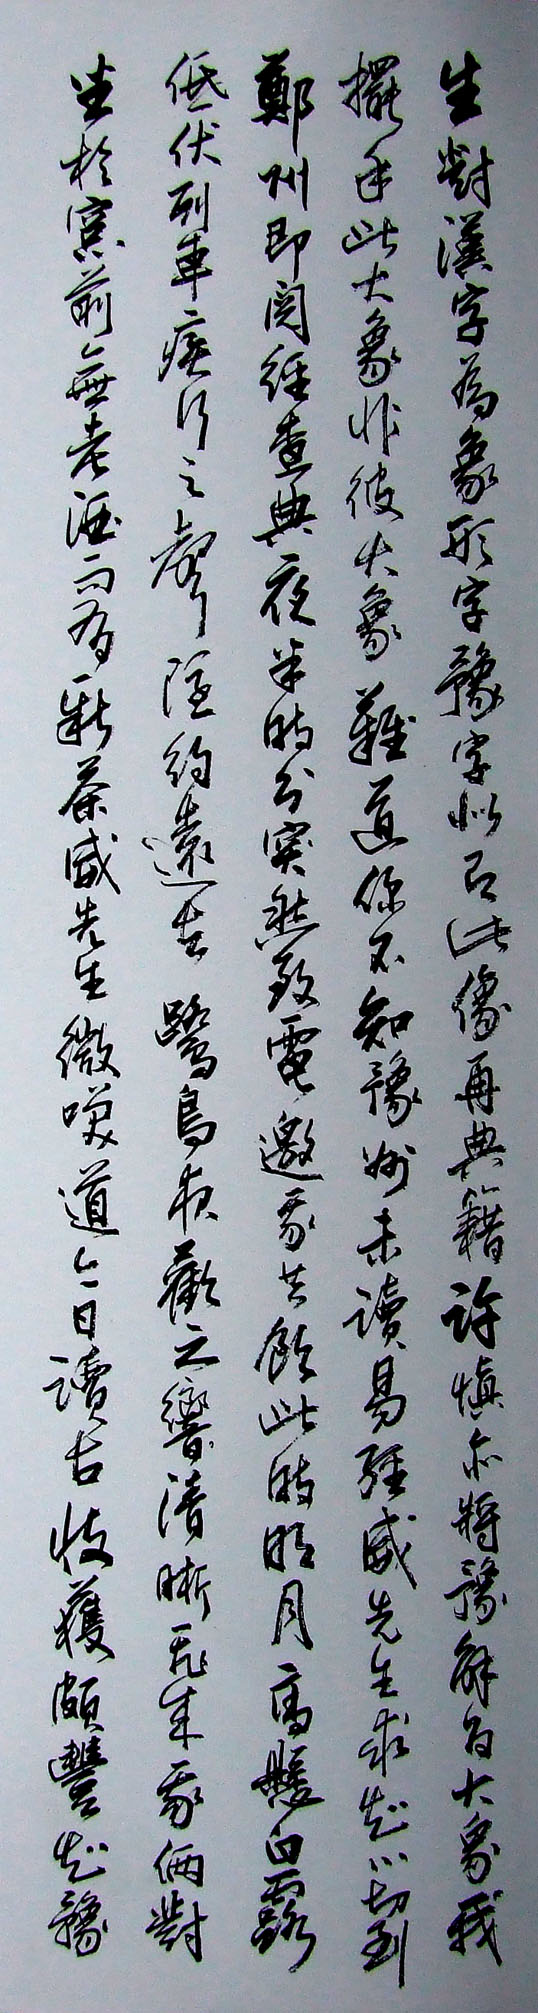 生對漢字為象形字豫字似已此像再典籍許慎亦將豫解為大象我
擺手此大象非彼大象難道你不知豫州未讀易經威先生求知心切到
鄭州即閱經查典夜半時分突然致電邀我共飲此時明月高懸白露
低伏列車疾行之聲隱約遠去鷺鳥夜歡之響清晰飛來我倆對
坐於窗前無老酒而有新茶威先生微嘆道今日讀古收獲頗豐知豫